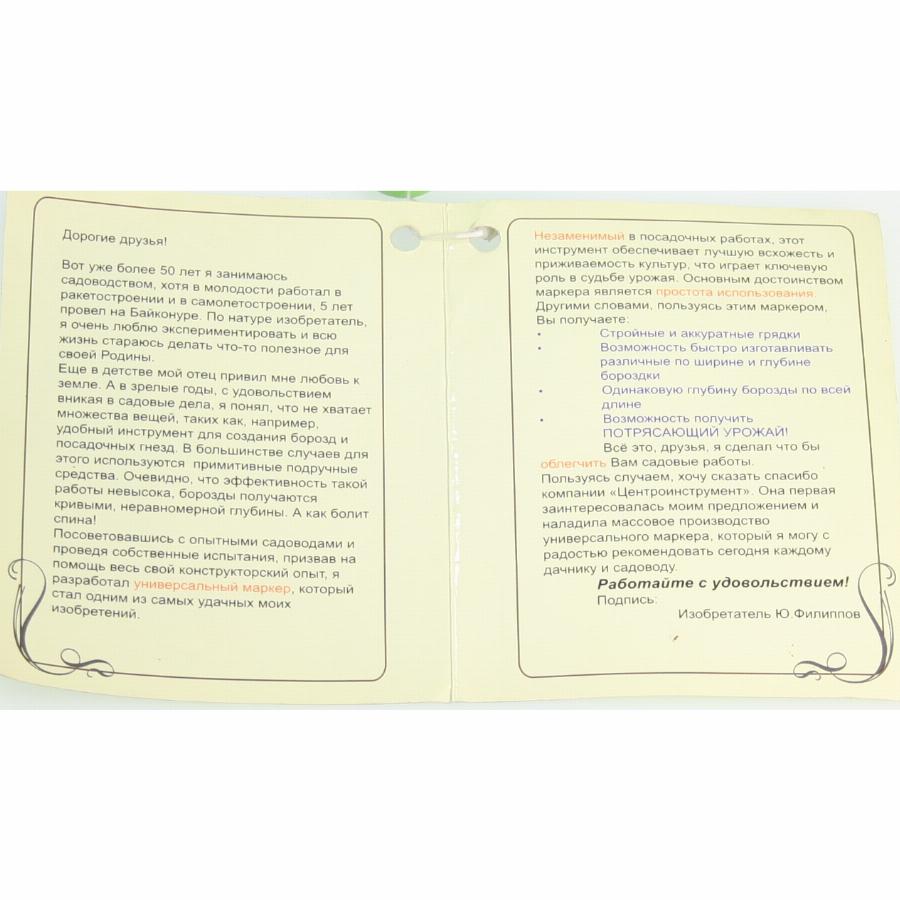 Дорогие друзья!
Вот уже более 50 лет я занимаюсь
садоводством, хотя в молодости работал в
ракетостроении и в самолетостроении, 5 лет
провел на Байконуре. По натуре изобретатель,
я очень люблю экспериментировать и всю
жизнь стараюсь делать что-то полезное для
своей Родины.
Еще в детстве мой отец привил мне любовь к
земле. А в зрелые годы, с удовольствием
вникая в садовые дела, я понял, что не хватает
множества вещей, таких как, например,
удобный инструмент для создания борозд и
посадочных гнезд. В большинстве случаев для
этого используются примитивные подручные
средства. Очевидно, что эффективность такой
работы невысока, борозды получаются
кривыми, неравномерной глубины. А как болит
спина!
Посоветовавшись с опытными садоводами и
проведя собственные испытания, призвав на
помощь весь свой конструкторский опыт, я
разработал универсальный маркер, который
стал одним из самых удачных моих
изобретений.
Незаменимый в посадочных работах, этот
инструмент обеспечивает лучшую всхожесть и
приживаемость культур, что играет ключевую
роль в судьбе урожая. Основным достоинством
маркера является простота использования.
Другими словами, пользуясь этим маркером,
Вы получаете:
• Стройные и аккуратные грядки
• Возможность быстро изготавливать
различные по ширине и глубине
бороздки
• Одинаковую глубину борозды по всей
длине
• Возможность получить
ПОТРЯСАЮЩИЙ УРОЖАЙ!
Всё это, друзья, я сделал что бы
облегчить Вам садовые работы.
Пользуясь случаем, хочу сказать спасибо
компании «Центроинструмент». Она первая
заинтересовалась моим предложением и
наладила массовое производство
универсального маркера, который я могу с
радостью рекомендовать сегодня каждому
дачнику и садоводу.
Работайте с удовольствием!
Подпись:
Изобретатель Ю.Филиппов